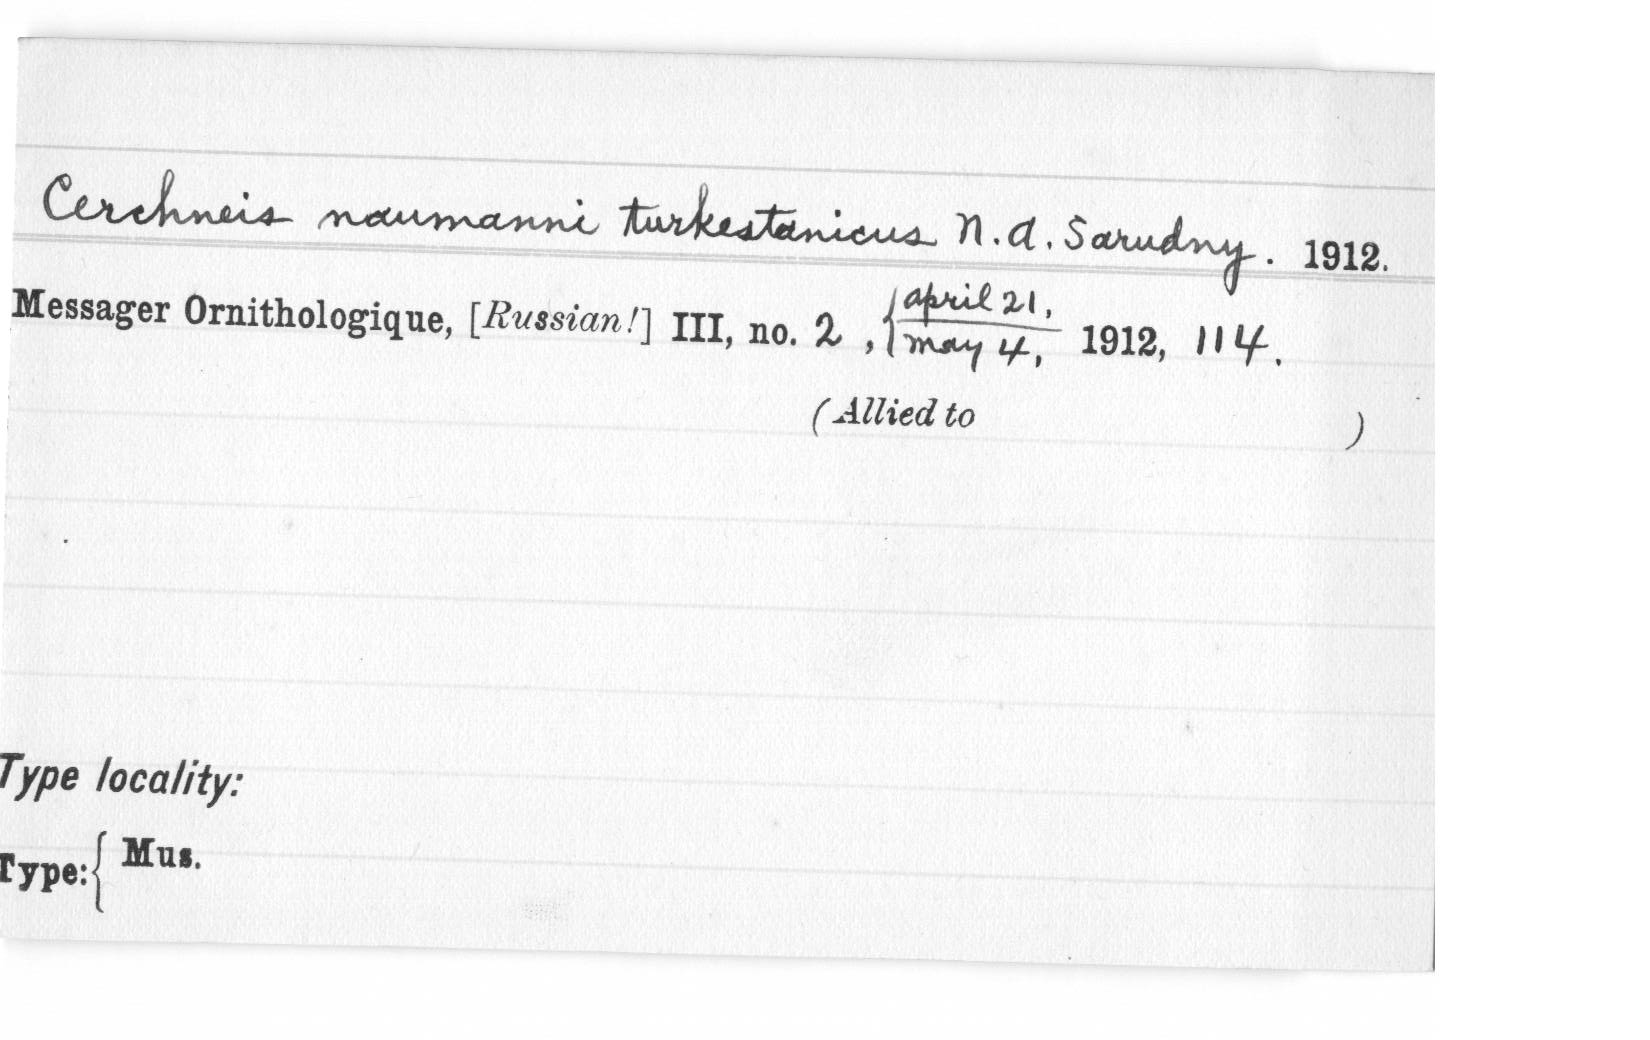 Cerchneis naumanni turkestanicus N. A. Sarudny. 1912.
Messager Ornithologique, [Russian!] III, no. 2, {april 21, / may 4, 1912, 114.
(Allied to )
Type locality:
Type: { Mus.